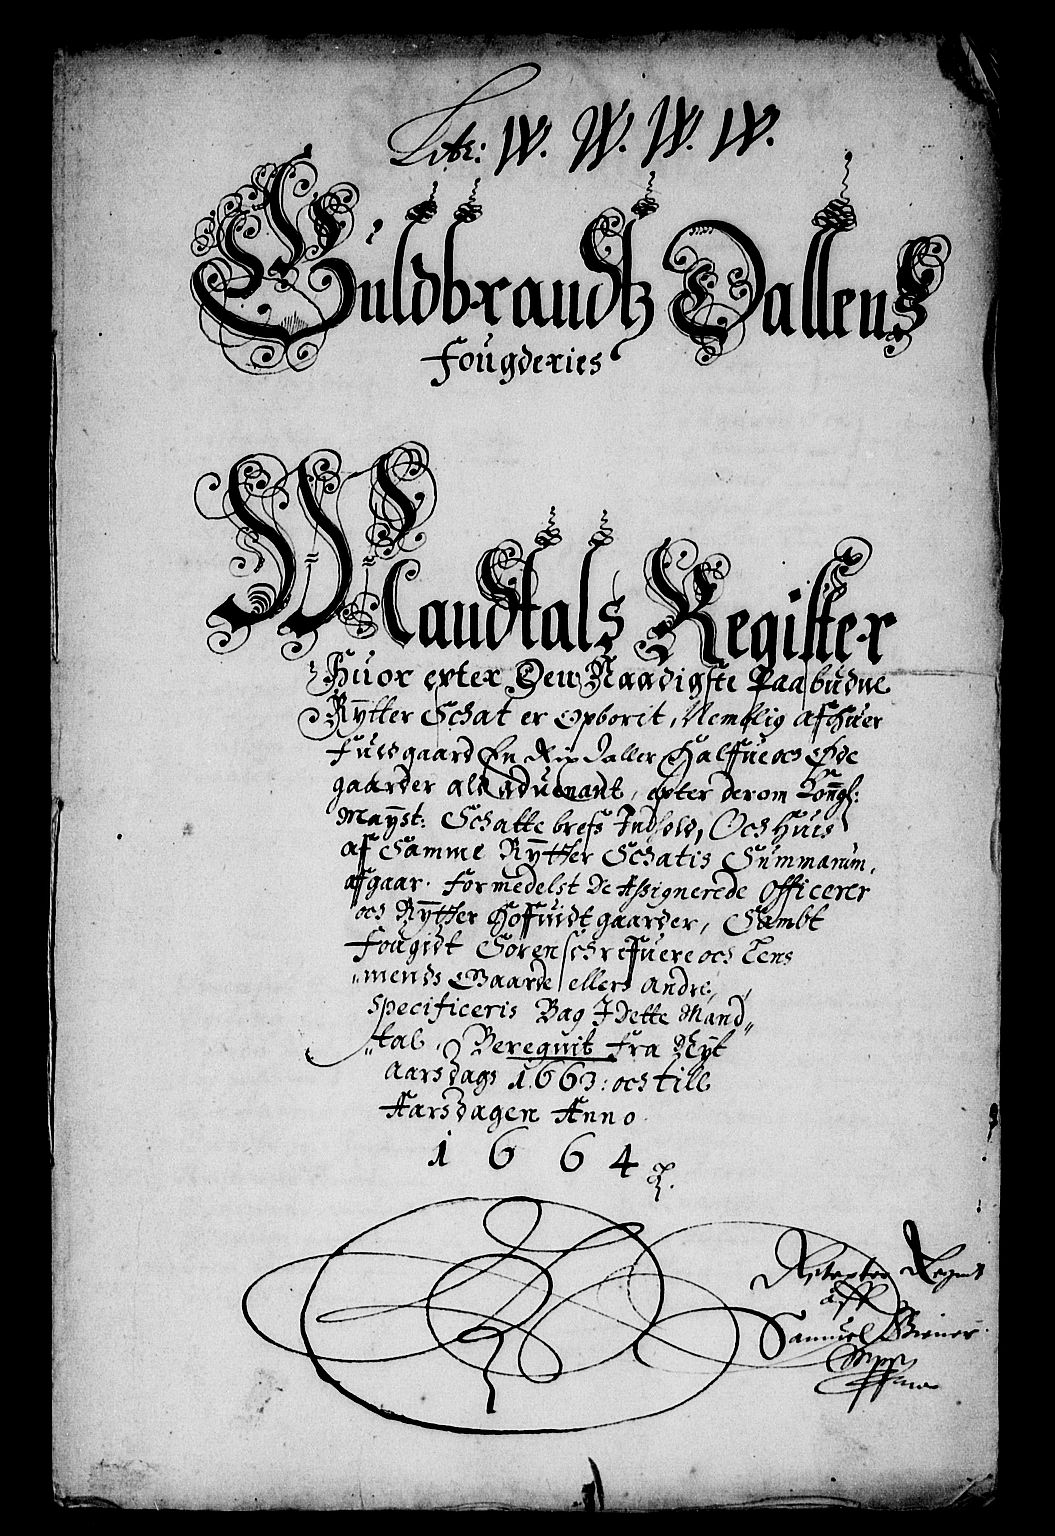 Litr: W. W. W. W.
Guldbrandtz Dallens
fougderies
Mandtals Register
Huor epter Den Naadigste Paabudne
Rÿtter Schat er Opborit, Nemblig af huer
fuldgaard En Rix daller Halffue och Øde
gaarder als Aduenant, epter derom Kongl:
Mayst: Schatte brefs Indhold, Och Huis
af Samme Rÿtter Schatis Summarum,
afgaar formedelst De Assignerede Officerer
och Rÿtter Hoffuidt gaarder, Sambt
fougidt Sorenschriffuere och Lens
mends Gaarde eller Andre,
specificeris Bag I dette Mand
tal, Beregnit fra Nÿt
aarsdags 1663: och till
Aarsdagen Anno
1664
Regnst
aff
Samuel